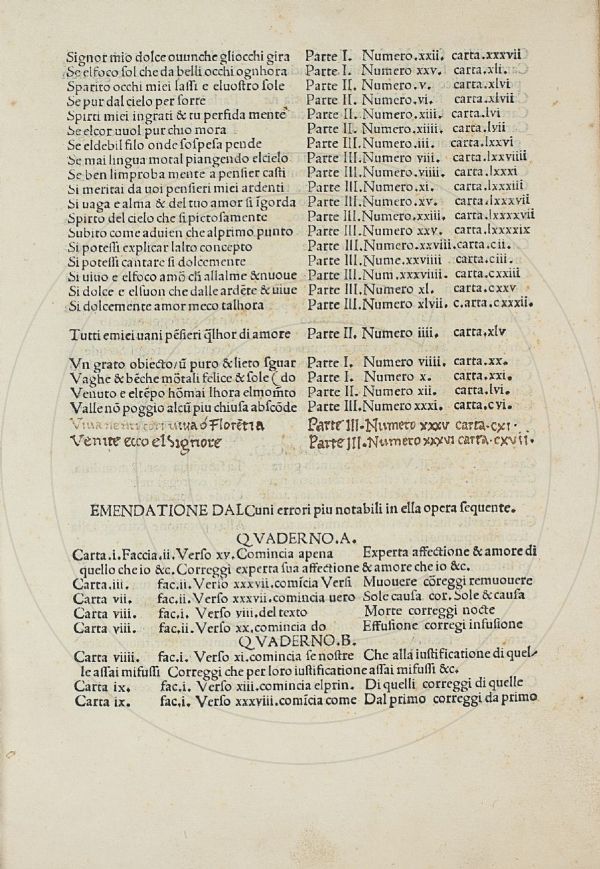 Signor mio dolce ouunche gliocchi gira Parte I. Numero.xxii. carta.xxxvii
Se elfoco sol che da belli occhi ognhora Parte I. Numero xxv. carta.xli.
Sparito occhi miei lassi e eluostro sole Parte II. Numero.v. carta.xlvi
Se pur dal cielo per sorte Parte II. Numero.vi. carta.xlvii
Spirti miei ingrati & tu perfida mente Parte II. Numero.xiii. carta.lvi
Se elcor uuol pur chio mora Parte II. Numero.xiiii. carta.lvii
Se eldebil filo onde sospesa pende Parte III.Numero.iii. carta.lxxvi
Se mai lingua motal piangendo elcielo Parte III.Numero viii. carta.lxxviiii
Se ben limproba mente a pensier casti Parte III.Numero.viiii. carta.lxxxi
Si meritai da uoi pensieri miei ardenti Parte III.Numero.xi. carta.lxxxiii
Si uaga e alma & del tuo amor si ígorda Parte III.Numero.xv. carta.lxxxvii
Spirto del cielo che si pietosamente Parte III.Numero.xxiii. carta.lxxxxvii
Subito come aduien che alprimo punto Parte III.Numero xxv. carta.lxxxxix
Si potessi explicar lalto concepto Parte III.Numero.xxviii.carta.cii.
Si potessi cantare si dolcemente Parte III.Nume.xxviiii carta.ciii.
Si uiuo e elfoco amõ chi assalme &nuoue Parte III.Num.xxxviiii carta.cxxiii
Si dolce e elsuon che dalle ardẽte & uiue Parte III.Numero xl. carta.cxxv
Si dolcemente amor meco talhora Parte III.Numero xlvii. c.arta.cxxxii.
Tutti emiei uani pẽsieri q̃lhor di amore Parte II. Numero iiii. carta.xlv
Vn grato obiecto/ũ puro & lieto sguar Parte I. Numero viiii. carta.xx.
Vaghe & bẽche mõtali felice & sole (do Parte I. Numero x. carta.xxi.
Venuto e eltẽpo hõmai lhora elmomẽto Parte II. Numero xii. carta.lvi.
Valle nõ poggio alcũ piu chiusa abscõde Parte III.Numero xxxi. carta.cvi.
Viva viva Florẽtia Parte III.Numero xxxv carta.cxi.
Venite ecco el Signore Parte III.Numero xxxvi carta.cxvii.
EMENDATIONE DALCuni errori piu notabili in essa opera sequente.
QVADERNO.A.
Carta.i.Faccia.ii.Verso xv.Comincia apena Experta affectione & amore di
quello che io &c.Correggi experta sua affectione & amore che io &c.
Carta.iii. fac.ii.Verso xxxvii.comícia Versi Muouere cõreggi remuouere
Carta vii. fac.i. Verso xxxvii.comincia uero Sole causa cor.Sole & causa
Carta viii. fac.i. Verso viii.del texto Morte correggi nocte
Carta viii. fac.ii. Verso xx.comincia do Effusione corregi infusione
QVADERNO.B.
Carta viiii. fac.i. Verso xi.comincia se nostre Che alla iustificatione di quel/
le assai mifussi Correggi che per loro iustificatione assai mifussi &c.
Carta ix. fac.i. Verso xiii.comincia elprin. Di quelli correggi di quelle
Carta ix. fac.i. Verso xxxviii.comícia come Dal primo correggi da primo